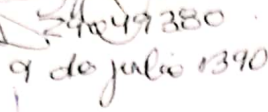 24049380
9 de julio 1390